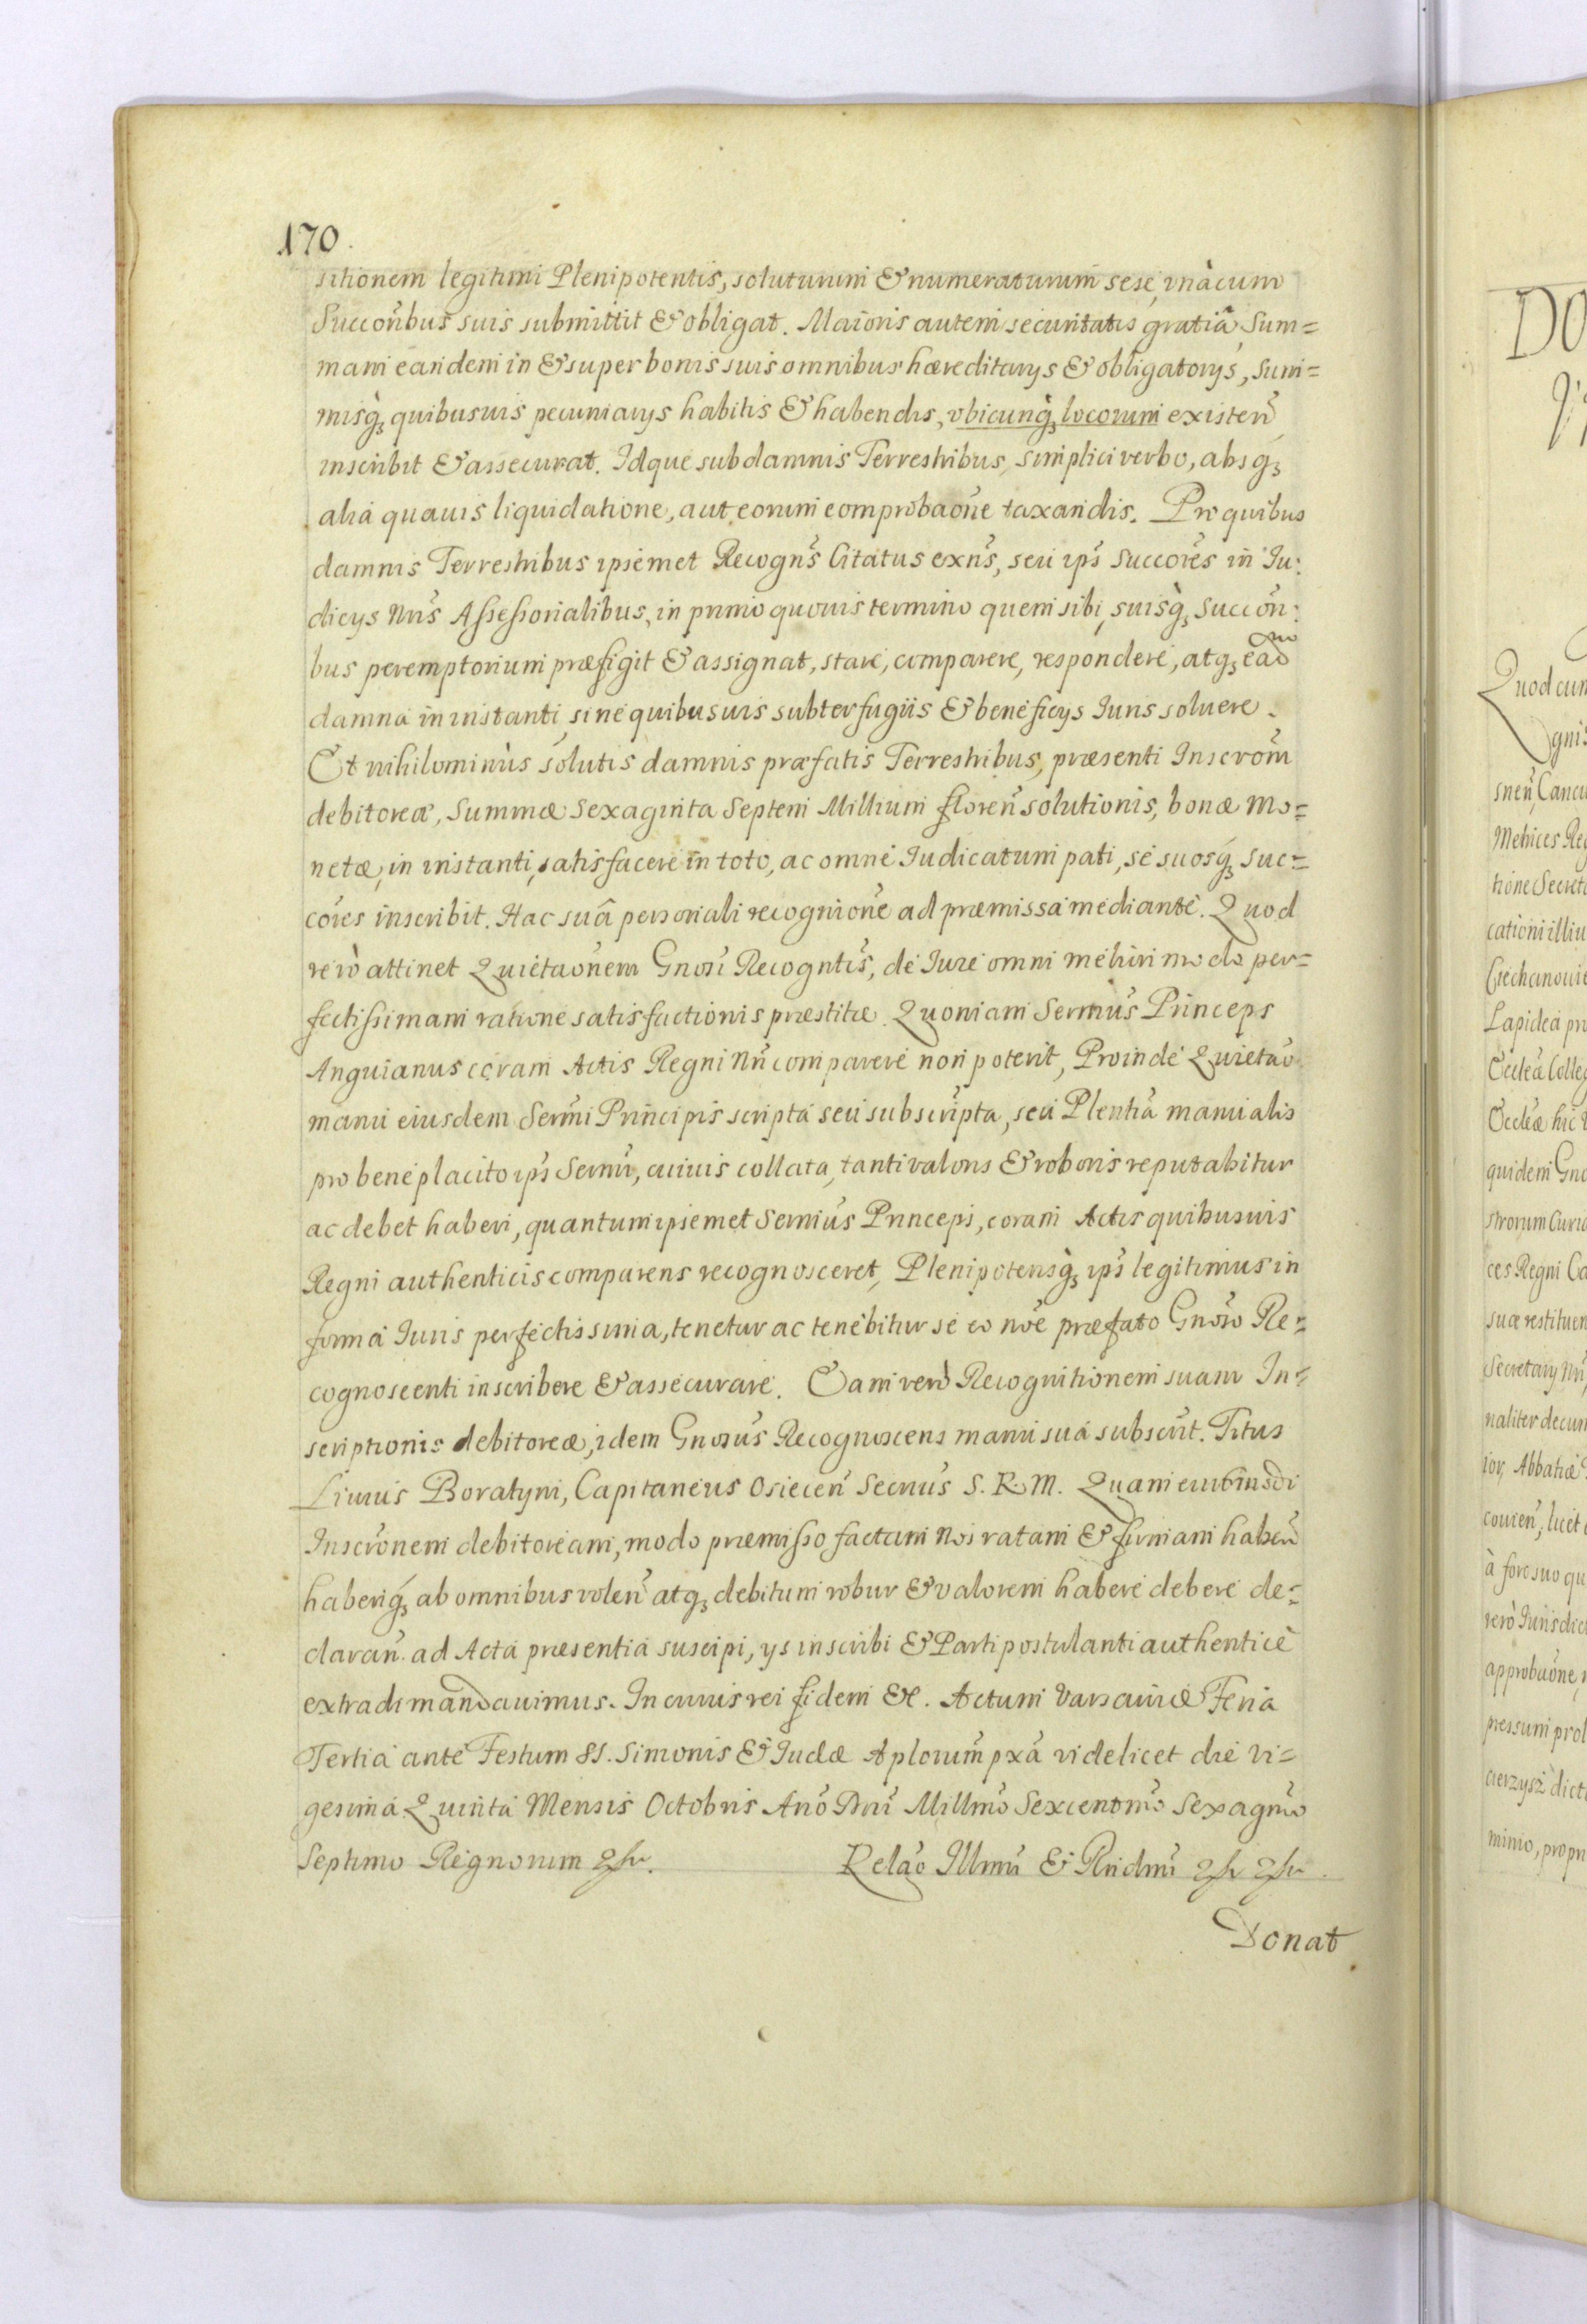 170.
sitionem legitimi Plenipotentis, soluturum & numeraturum sese, vnàcum
Succoribus suis submittit & obligat. Maioris autem securitatis gratiâ Sum=
mam eandem in & super bonis suis omnibus hæreditarys & obligatorys, Sum=
misq, quibusuis pecuniarys habitis & habendis, vbicunq, locorum existen
inscribit & assecurat. Idque sub damnis Terrestribus, simplici verbo, absq,
alia quauis liquidatione, aut eorum comprobaone taxandis. Pro quibus
damnis Terrestribus ipsemet Recogns Citatus exns, seu ips Succores in Iu:
dicys Nris Assessorialibus, in primo quouis termino quem sibi, suisq, Succori:
bus peremptorium præfigit & assignat, stare, comparere, respondere, atq, ead
damna in instanti, sine quibusuis subterfugiis & beneficys Iuris soluere.
Et nihilominùs solutis damnis præfatis Terrestribus, præsenti Inscrom
debitoreæ, Summæ Sexaginta Septem Millium floren solutionis, bonæ Mo=
netæ, in instanti, satisfacere in toto, ac omne Iudicatum pati, se suosq, Suc=
cores inscribit. Hac suâ personali recognione ad præmissa mediante. Quod
verò attinet Quietaonem Gnosi Recogntis, de Iure omni meliori modo per=
fectissimam ratione satisfactionis præstitæ. Quoniam Sermus Princeps
Anguianus coram Actis Regni Nri comparere non poterit, Proinde Quietao
manu eiusdem Sermi Principis scripta seu subscripta, seu Plentia manualis
pro beneplacito ips Sermi, cuiuis collata, tanti valoris & roboris reputabitur
ac debet haberi, quantum ipsemet Sermus Princeps, coram Actis quibusuis
Regni authenticis comparens recognosceret, Plenipotensq, ips legitimus in
forma Iuris perfectissima, tenetur ac tenebitur se eo noe præfato Gnoso Re=
cognoscenti inscribere & assecurare. Eam verò Recognitionem suam In=
scriptionis debitoreæ, idem Gnosus Recognoscens manu sua subscrit. Titus
Liuius Boratyni, Capitaneus Osiecen Secrius S. R. M. Quam
Inscronem debitoream, modo præmisso factam Nos ratam & firmam haben
haberiq, ab omnibus volen atq, debitum robur & valorem habere debere de=
claran. ad Acta præsentia suscipi, ys inscribi & Parti postulanti authenticè
extradi mandauimus. In cuius rei fidem &c. Actum Varsauiæ Feria
Tertia ante Festum SS. Simonis & Iudæ Aplorum pxa videlicet die Vi=
gesima Quinta Mensis Octobris Ano Dni Millmo Sexcentmo Sexagmo
Septimo Regnorum
Relao Illmi & Rndmi
Donat
DO
Quod cum
gnis
snen, Cancu
Mehices Reg
tione Secret
cationi illiu
Ciechanouie
Lapidea pr
Ecclea Colleg
Eccleæ hic
quidem Gno
strorum Curia
ces Regni Ca
suæ restituen
Secretary Nri
naliter decum
ior, Abbatiæ
couien, licet
à foro suo qu
verò Iurisdict
approbaone,
pressum prol
cierzysz dict
minio, propri